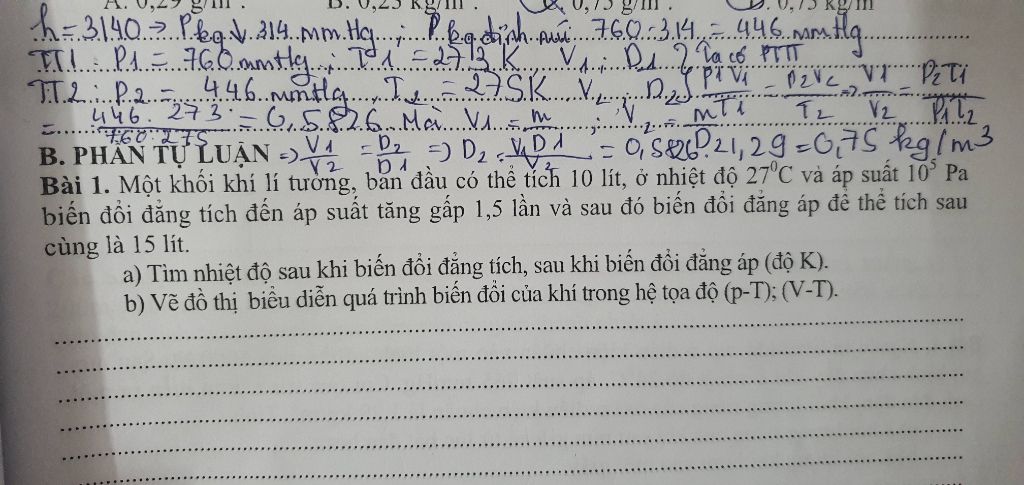 A. 0,29 g/m³. B. 0,25 kg/m³. C. 0,75 g/m³. D. 0,75 kg/m³
h = 3140 → Pkq↓ 314 mmHg ; Pkq đỉnh núi 760 - 314 = 446 mmHg
TT1 : P1 = 760 mmHg ; T1 = 273 K V1 ; D1 } Ta có PTTT
TT2 : P2 = 446 mmHg, T2 = 275K V2, D2 } P1V1/T1 = P2V2/T2 → V1/V2 = P2T1/P1T2
= 446.273/760.275 = 0,5826 Mà V1 = m/D1 ; V2 = m/D2
B. PHẦN TỰ LUẬN => V1/V2 = D2/D1 => D2 = V1D1/V2 = 0,5826.1,29 = 0,75 kg/m3
Bài 1. Một khối khí lí tưởng, ban đầu có thể tích 10 lít, ở nhiệt độ 27⁰C và áp suất 10⁵ Pa
biến đổi đẳng tích đến áp suất tăng gấp 1,5 lần và sau đó biến đổi đẳng áp để thể tích sau
cùng là 15 lít.
a) Tìm nhiệt độ sau khi biến đổi đẳng tích, sau khi biến đổi đẳng áp (độ K).
b) Vẽ đồ thị biểu diễn quá trình biến đổi của khí trong hệ tọa độ (p-T); (V-T).